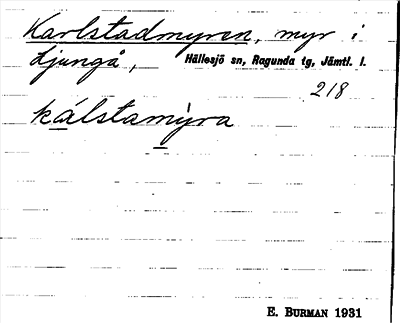 Karlstadmyren, myr i
Ljungå, Hällesjö sn, Ragunda tg, Jämtl. l.
218
kálstamỳra
E. BURMAN 1931